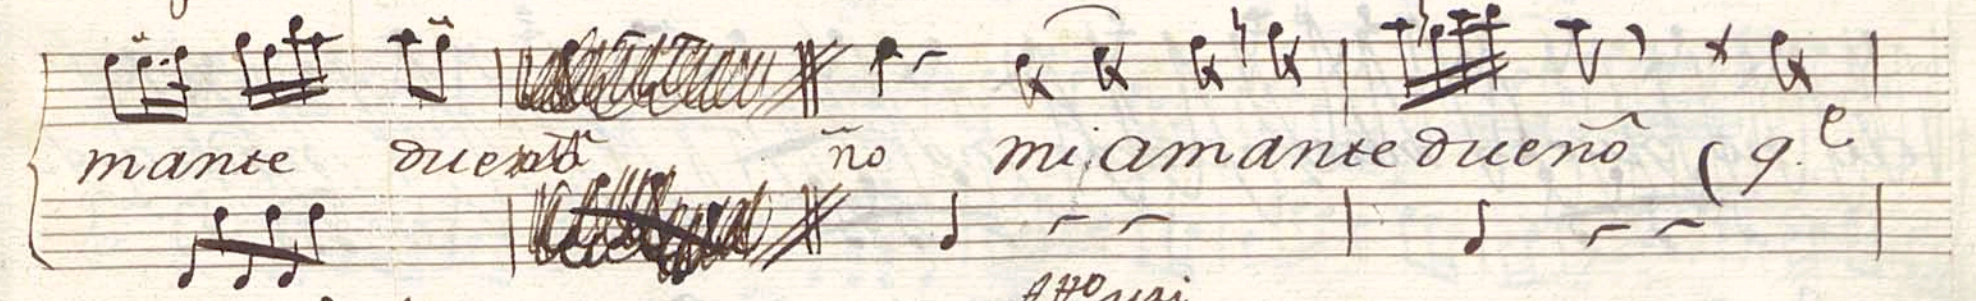 mante due ño mi amante dueño (q.e